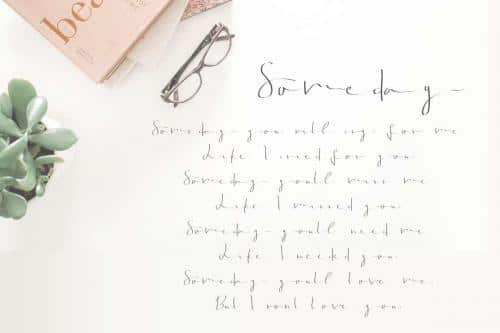 bea
Someday
Someday you will cry for me
Life I cried for you.
Someday you'll miss me
Life I missed you.
Someday you'll need me
Life I needed you.
Someday you'll love me.
But I wont love you.